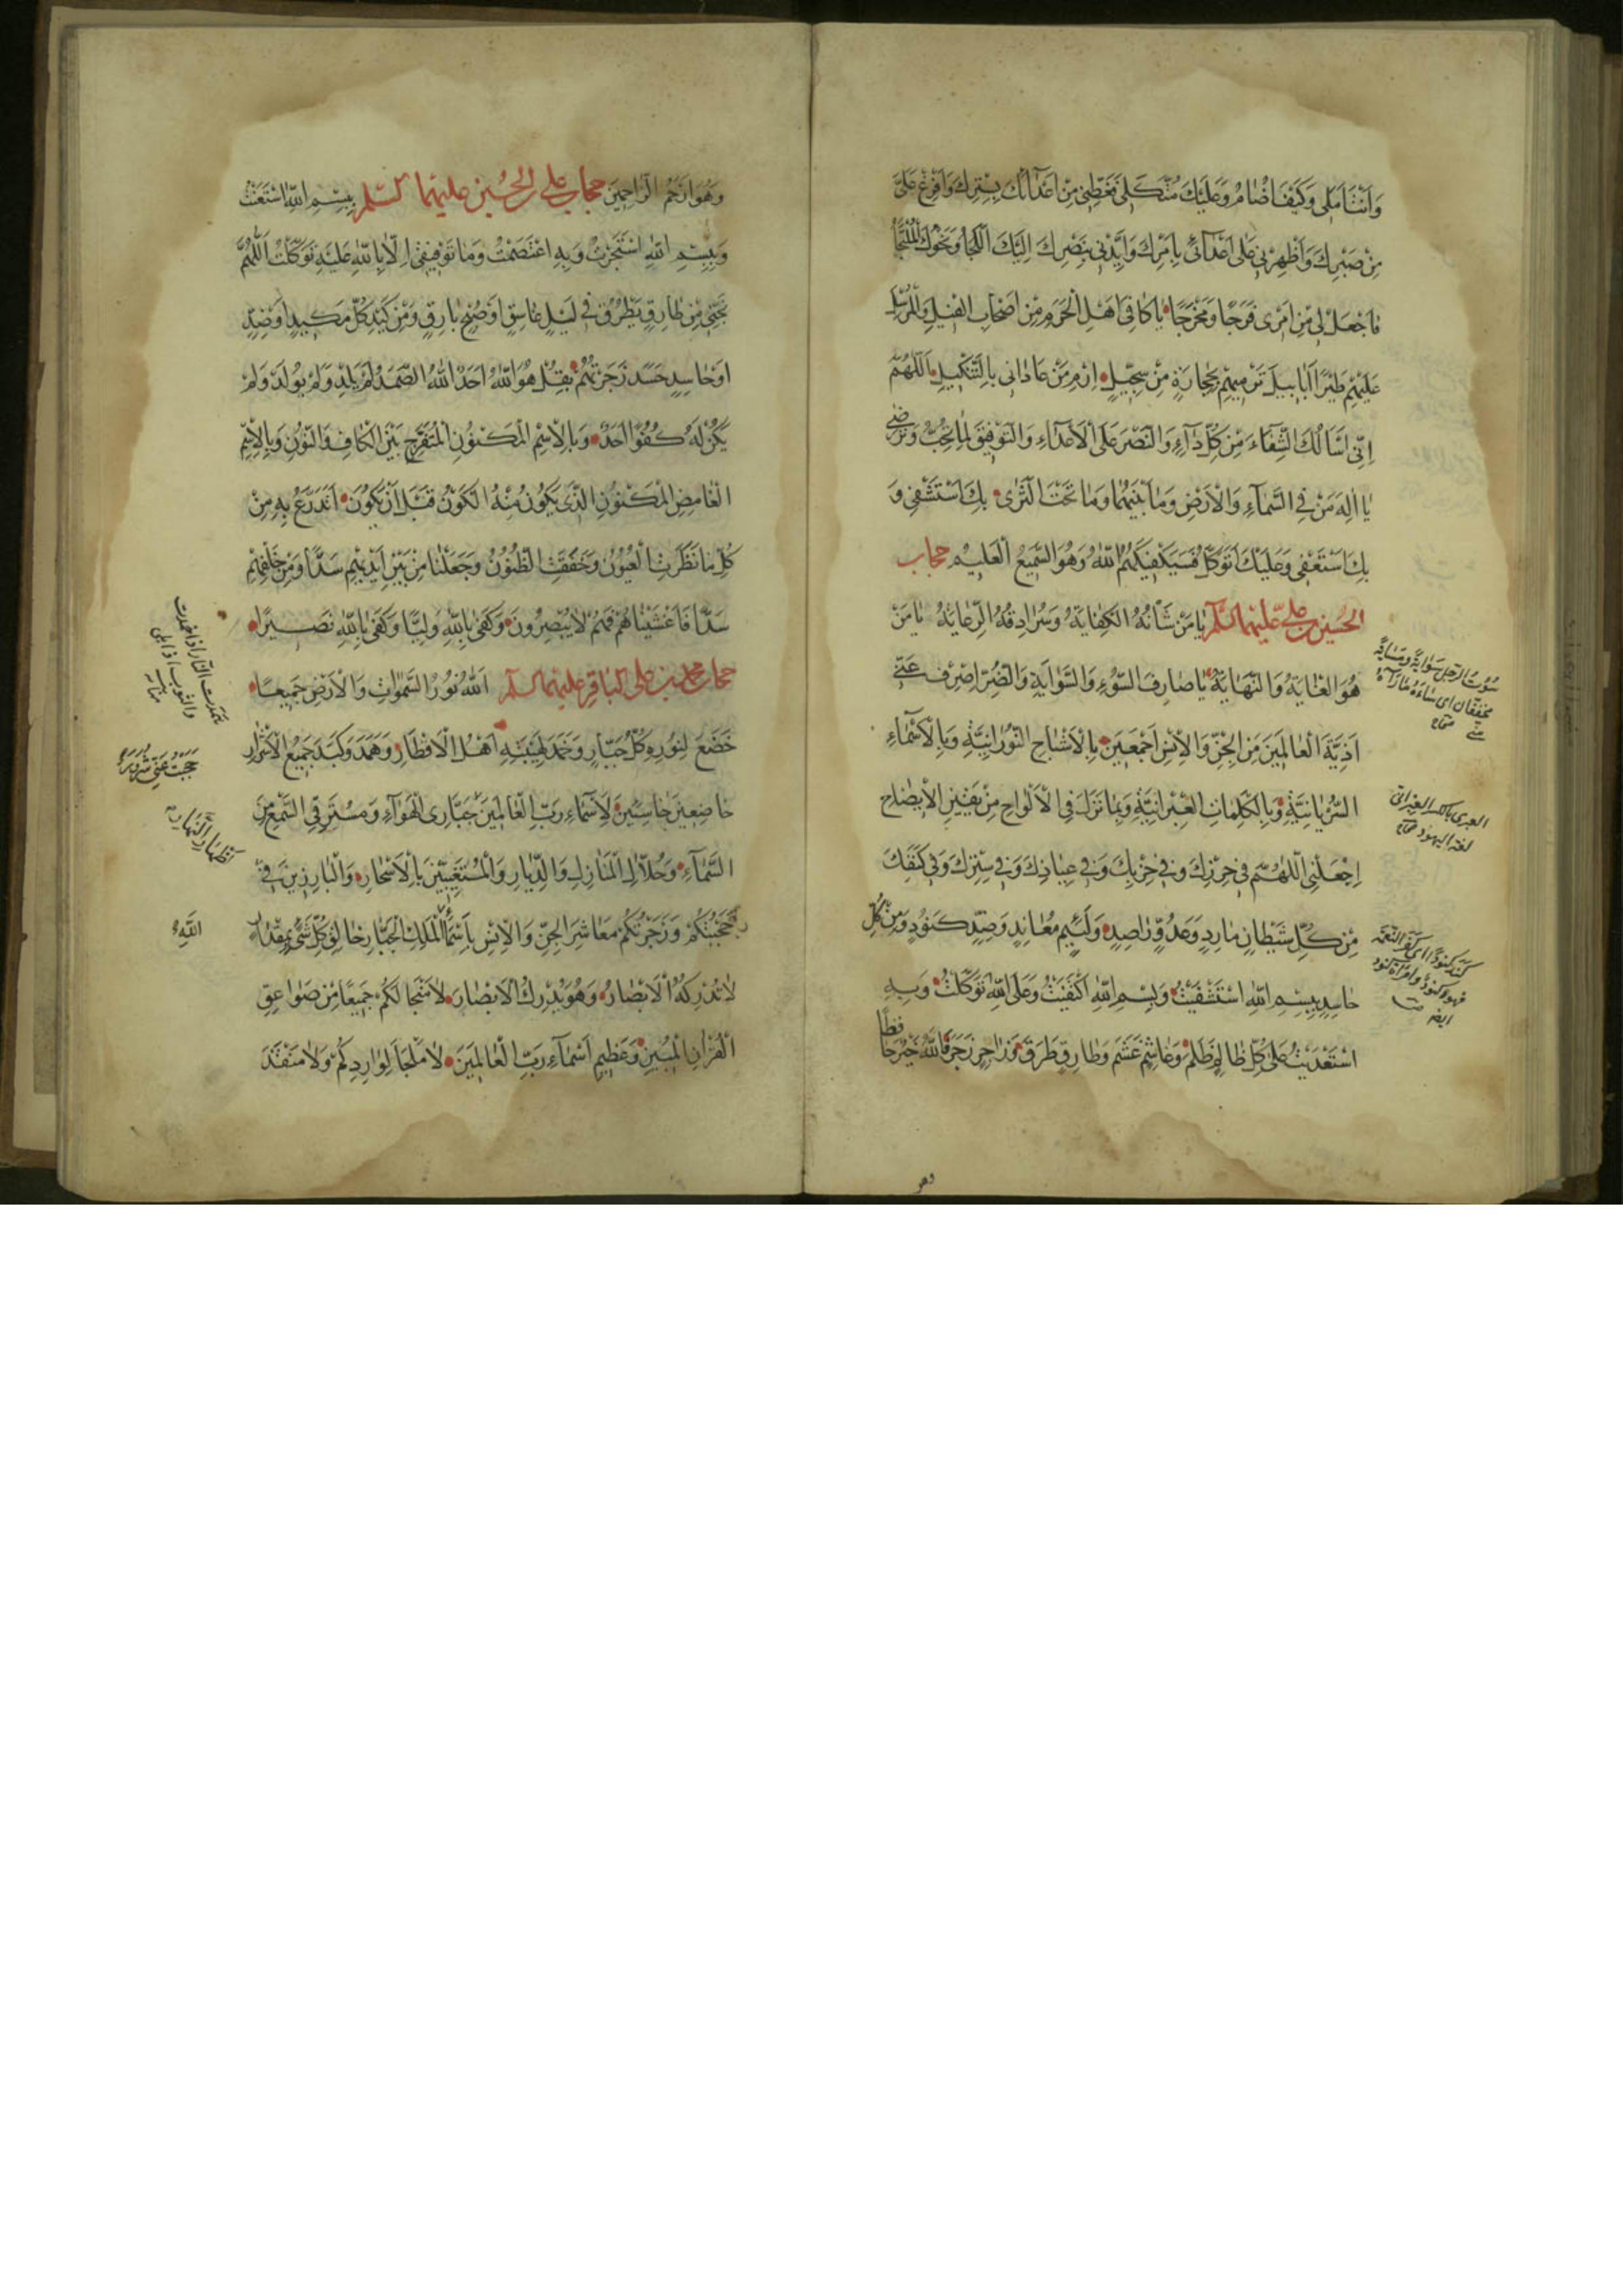 وَاَنْتَ اَمَلى وَكَيْفَ اُضٰامُ وَعَلَيْكَ مُتَّكَلى فَغَطِّنى مِنْ اَعْدٰائِكَ بِسِتْرِكَ وَاَفْرِغْ عَلَىَّ
مِنْ صَبْرِكَ وَاَظْهِرْنى عَلىٰ اَعْدٰائى بِاَمْرِكَ وَاَيِّدْنى بِنَصْرِكَ اِلَيْكَ اللَّجَأُ وَنَحْوَكَ الْمُلْتَجَأُ
فَاجْعَلْ لى مِنْ اَمْرى فَرَجًا وَمَخْرَجًا يٰا كٰافِىَ اَهْلِ الْحَرَمِ مِنْ اَصْحٰابِ الْفيلِ وَالْمُرْسِلَ
عَلَيْهِمْ طَيْرًا اَبٰابيلَ تَرْميهِمْ بِحِجٰارَةٍ مِنْ سِجّيلٍ اِرْمِ مَنْ عٰادٰانى بِالتَّنْكيلِ اَللّٰهُمَّ
اِنّى اَسْاَلُكَ الشِّفٰاءَ مِنْ كُلِّ دٰاءٍ وَالنَّصْرَ عَلَى الْاَعْدٰاءِ وَالتَّوْفيقَ لِمٰا تُحِبُّ وَتَرْضىٰ
يٰا اِلٰهَ مَنْ فِى السَّمٰاءِ وَالْاَرْضِ وَمٰا بَيْنَهُمٰا وَمٰا تَحْتَ الثَّرىٰ بِكَ اَسْتَشْفى وَ
بِكَ اَسْتَعْفى وَعَلَيْكَ اَتَوَكَّلُ فَسَيَكْفيكَهُمُ اللّٰهُ وَهُوَ السَّميعُ الْعَليمُ حجاب
الحسين بن علىّ عليهما السلم يٰا مَنْ شَأْنُهُ الْكِفٰايَةُ وَسُرٰادِقُهُ الرِّعٰايَةُ يٰا مَنْ
هُوَ الْغٰايَةُ وَالنِّهٰايَةُ يٰا صٰارِفَ السُّوءِ وَالسَّوٰايَةِ وَالضُّرِّ اِصْرِفْ عَنّى
اَذِيَّةَ الْعٰالَمينَ مِنَ الْجِنِّ وَالْاِنْسِ اَجْمَعينَ بِالْاَشْبٰاحِ النُّورٰانِيَّةِ وَبِالْاَسْمٰاءِ
السُّرْيٰانِيَّةِ وَبِالْكَلِمٰاتِ الْعِبْرٰانِيَّةِ وَبِمٰا نَزَلَ فِى الْاَلْوٰاحِ مِنْ يَقينِ الْايضٰاحِ
اِجْعَلْنِى اللّٰهُمَّ فى حِرْزِكَ وَفى حِزْبِكَ وَفى عِيٰاذِكَ وَفى سِتْرِكَ وَفى كَنَفِكَ
مِنْ كُلِّ شَيْطٰانٍ مٰارِدٍ وَعَدُوٍّ رٰاصِدٍ وَلَئيمٍ مُعٰانِدٍ وَضِدٍّ كَنُودٍ وَمِنْ كُلِّ
حٰاسِدٍ بِسْمِ اللّٰهِ اسْتَشْفَيْتُ وَبِسْمِ اللّٰهِ اكْتَفَيْتُ وَعَلَى اللّٰهِ تَوَكَّلْتُ وَبِهِ
اسْتَعْدَيْتُ عَلىٰ كُلِّ ظٰالِمٍ ظَلَمَ وَغٰاشِمٍ غَشَمَ وَطٰارِقٍ طَرَقَ وَزٰاجِرٍ زَجَرَ فَاللّٰهُ خَيْرٌ حٰافِظًا
العبرى بالكسر العبرانى
لغة اليهود صحاح
كند كنودا اى كفر النعمة
فهو كنود وامراة كنود
ايضا
وهو
وَهُوَ اَرْحَمُ الرّٰاحِمينَ حجاب على بن الحسين عليهما السلم بِسْمِ اللّٰهِ اسْتَعَنْتُ
وَبِبِسْمِ اللّٰهِ اسْتَجَرْتُ وَبِهِ اعْتَصَمْتُ وَمٰا تَوْفيقى اِلّٰا بِاللّٰهِ عَلَيْهِ تَوَكَّلْتُ اَللّٰهُمَّ
نَجِّنى مِنْ طٰارِقٍ يَطْرُقُ فى لَيْلٍ غٰاسِقٍ اَوْ صُبْحٍ بٰارِقٍ وَمِنْ كَيْدِ كُلِّ مَكيدٍ اَوْ ضِدٍّ
اَوْ حٰاسِدٍ حَسَدَ زَجَرْتُهُمْ بِقُلْ هُوَ اللّٰهُ اَحَدٌ اَللّٰهُ الصَّمَدُ لَمْ يَلِدْ وَلَمْ يُولَدْ وَلَمْ
يَكُنْ لَهُ كُفُوًا اَحَدٌ وَبِالْاِسْمِ الْمَكْنُونِ الْمُتَفَرِّجِ بَيْنَ الْكٰافِ وَالنُّونِ وَبِالْاِسْمِ
الْغٰامِضِ الْمَكْنُونِ الَّذى يَكُونُ مِنْهُ الْكَوْنُ قَبْلَ اَنْ يَكُونَ اَتَدَرَّعُ بِهِ مِنْ
كُلِّ مٰا نَظَرَتِ الْعُيُونُ وَخَفَقَتِ الظُّنُونُ وَجَعَلْنٰا مِنْ بَيْنِ اَيْديهِمْ سَدًّا وَمِنْ خَلْفِهِمْ
سَدًّا فَاَغْشَيْنٰاهُمْ فَهُمْ لٰا يُبْصِرُونَ وَكَفىٰ بِاللّٰهِ وَلِيًّا وَكَفىٰ بِاللّٰهِ نَصيرًا
حجاب محمد بن على الباقر عليهما السلم اَللّٰهُ نُورُ السَّمٰوٰاتِ وَالْاَرْضِ جَميعًا
خَضَعَ لِنُورِهِ كُلُّ جَبّٰارٍ وَخَمَدَ لِهَيْبَتِهِ اَهْلُ الْاَقْطٰارِ وَهَمَدَ وَكَبَدَ جَميعُ الْاَشْرٰارِ
خٰاضِعينَ خٰاسِئينَ لِاَسْمٰاءِ رَبِّ الْعٰالَمينَ جَبّٰارِى الْهَوٰاءِ وَمُسْتَرِقِى السَّمْعِ مِنَ
السَّمٰاءِ وَحُلّٰالَ الْمَنٰازِلِ وَالدِّيٰارِ وَالْمُتَغَيِّبينَ بِالْاَسْحٰارِ وَالْبٰارِزينَ فى
اِظْهٰارِ النَّهٰارِ
حَجَبْتُكُمْ وَزَجَرْتُكُمْ مَعٰاشِرَ الْجِنِّ وَالْاِنْسِ بِاَسْمٰاءِ الْمَلِكِ الْجَبّٰارِ خٰالِقِ كُلِّ شَىْءٍ بِمِقْدٰارٍ
لٰا تُدْرِكُهُ الْاَبْصٰارُ وَهُوَ يُدْرِكُ الْاَبْصٰارَ لٰا مَنْجٰا لَكُمْ جَميعًا مِنْ صَوٰاعِقِ
الْقُرْاٰنِ الْمُبينِ وَعَظيمِ اَسْمٰاءِ رَبِّ الْعٰالَمينَ لٰا مَلْجَاَ لِوٰارِدِكُمْ وَلٰا مَنْفَذَ